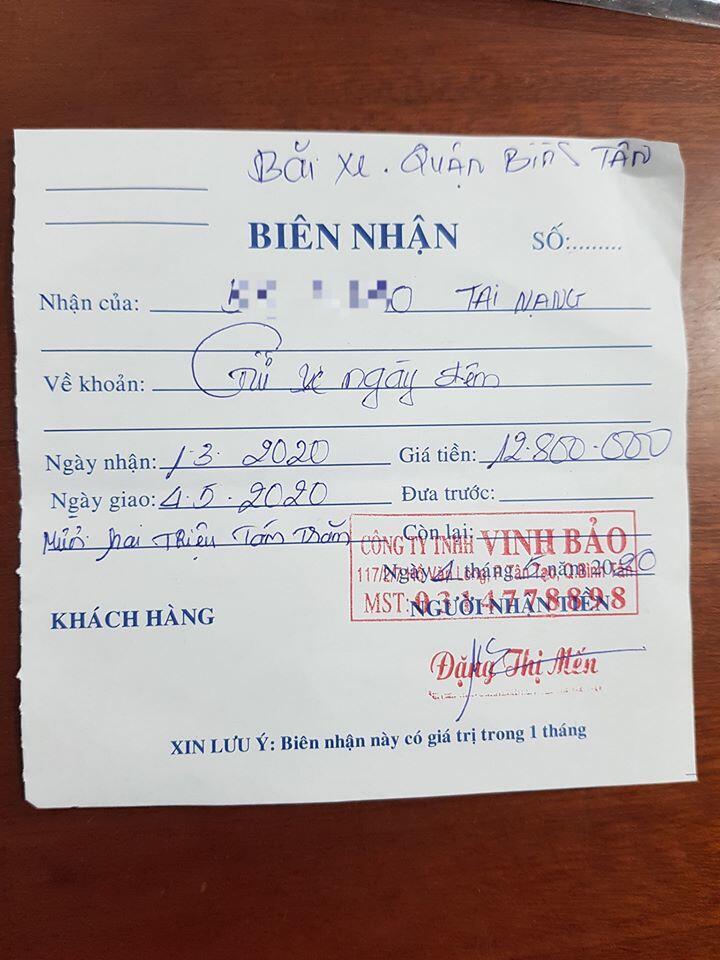 Bãi xe. QUẬN BìNh TÂN
BIÊN NHẬN
SỐ:........
Nhận của: TAI NẠNG
Về khoản: Gửi xe ngày đêm
Ngày nhận: 1.3. 2020 Giá tiền: 12.800.000
Ngày giao: 4.5.2020 Đưa trước:
Mười hai Triệu Tám Trăm Còn lại:
CÔNG TY TNHH VINH BẢO
Ngày 4 tháng 5 năm 2020
MST: 0314778898
KHÁCH HÀNG NGƯỜI NHẬN TIỀN
Đặng Thị Mến
XIN LƯU Ý: Biên nhận này có giá trị trong 1 tháng